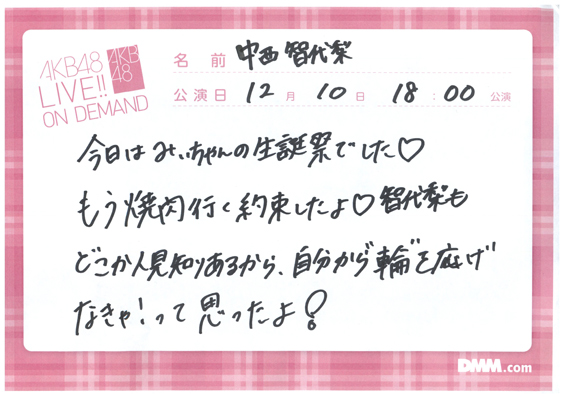 AKB48
LIVE!!
ON DEMAND
AKB
48
名 前 中西智代梨
公演日 12 月 10 日 18 : 00 公演
今日はみぃちゃんの生誕祭でした♡
もう焼肉行く約束したよ♡智代梨も
どこか人見知りあるから、自分から"輪"を広げ
なきゃ!って思ったよ!
DMM.com